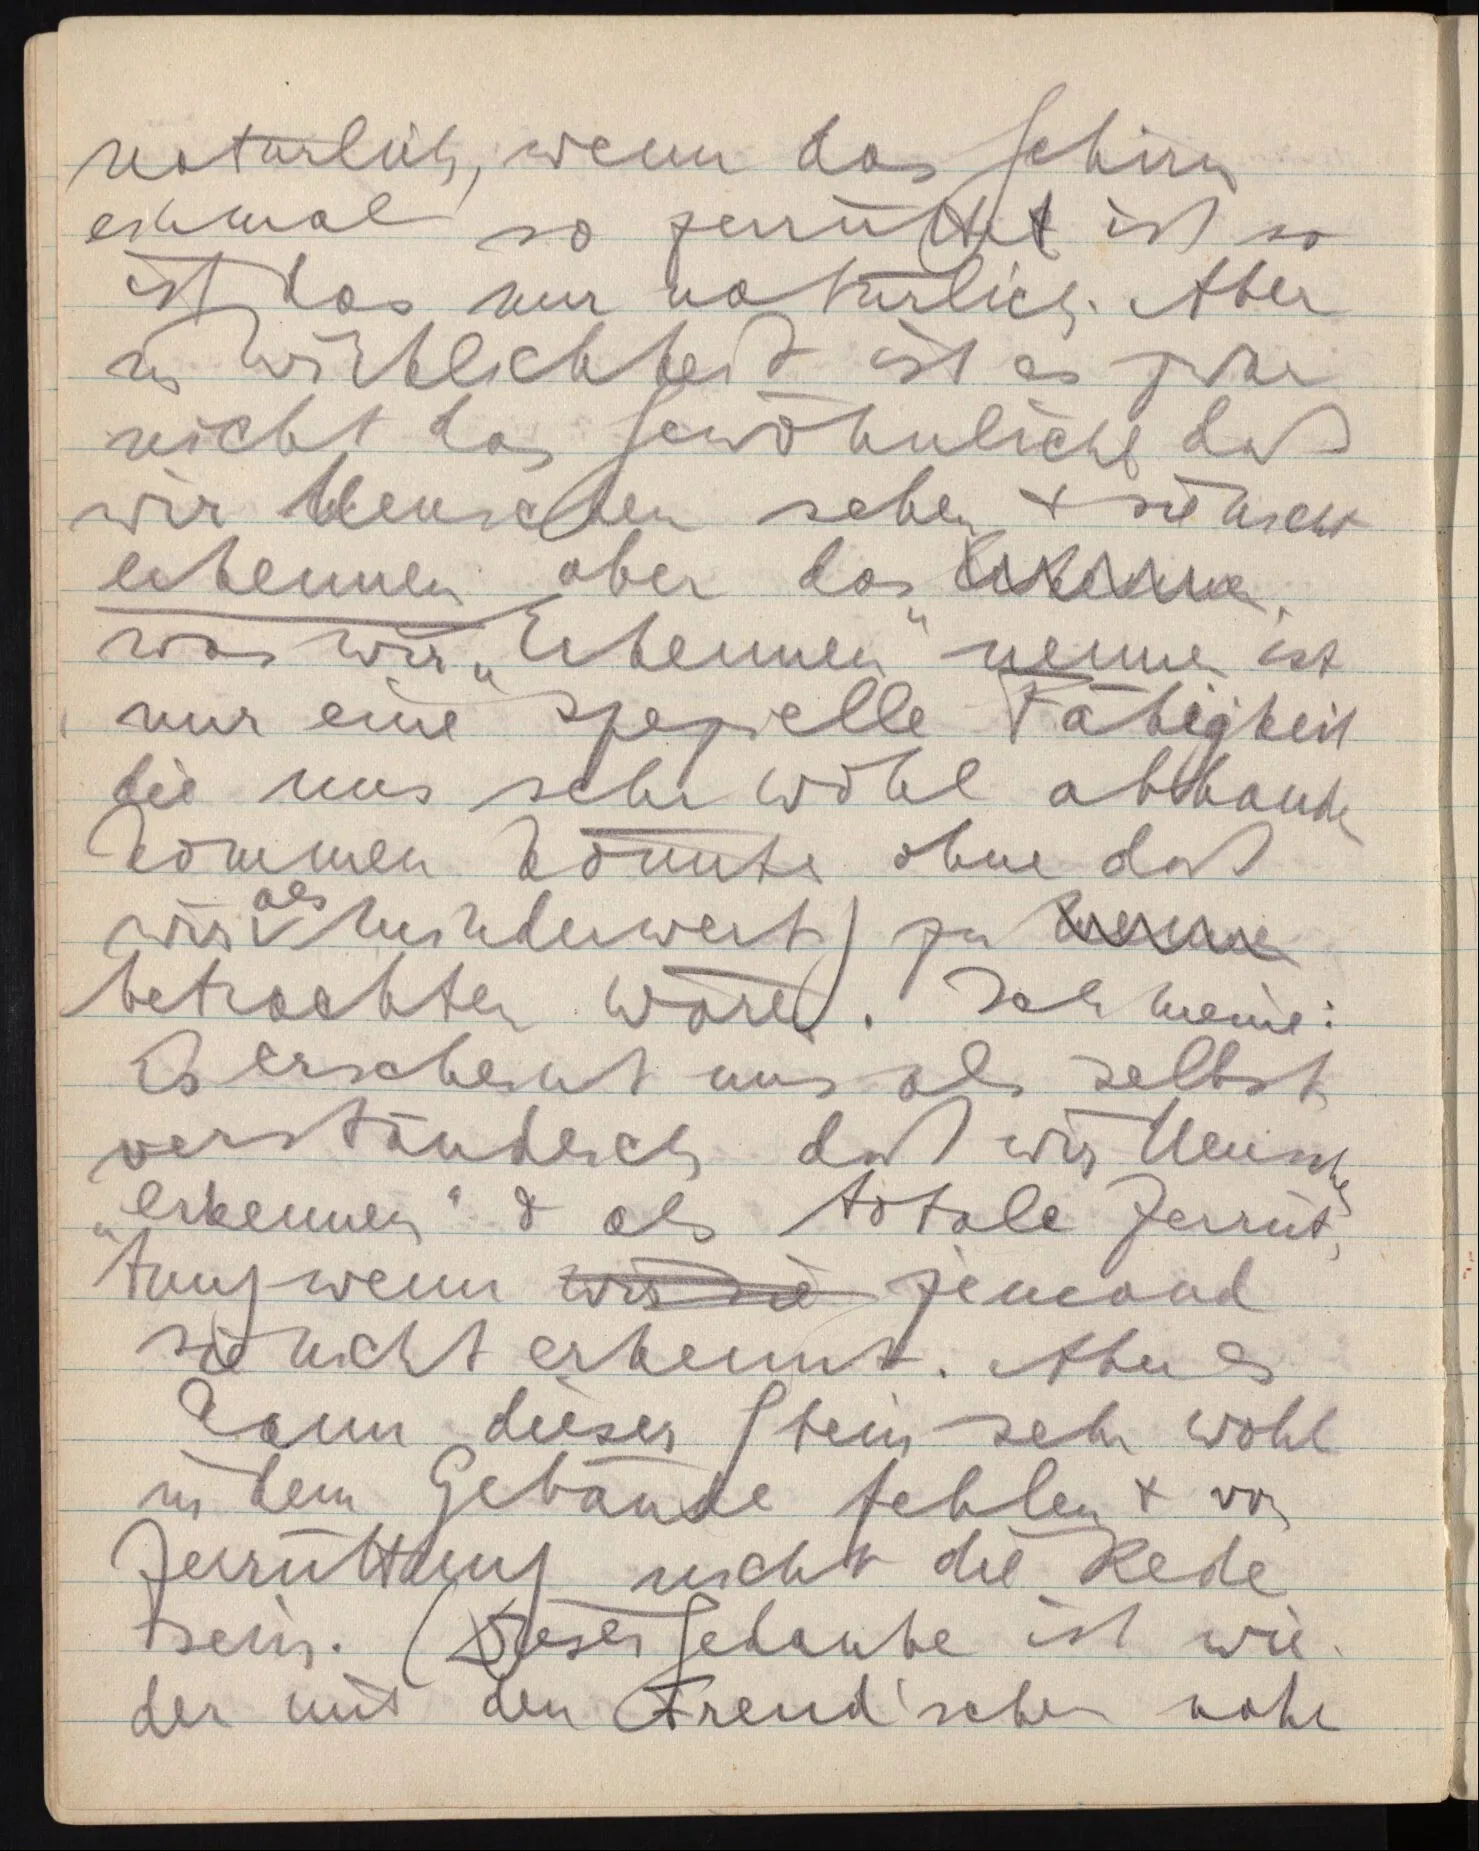 natürlich, wenn das Gehirn
einmal so zerrüttet ist so
ist das nur natürlich. Aber
in Wirklichkeit ist es zwar
nicht das Gewöhnliche daß
wir Menschen sehen & sie nicht
erkennen aber das Erkennen,
was wir „Erkennen“ nennen ist
nur eine spezielle Fähigkeit
die uns sehr wohl abhanden
kommen könnte ohne daß
wir als minderwertig zu nennen
betrachten wären. Ich meine:
Es erscheint uns als selbst
verständlich daß wir Menschen
„erkennen“ & als totale Zerrüt
tung wenn wir sie jemand
sie nicht erkennt. Aber es
kann dieser Stein sehr wohl
in dem Gebäude fehlen & von
Zerrüttung nicht die Rede
sein. (Dieser Gedanke ist wie
der mit den Freud'schen nahe